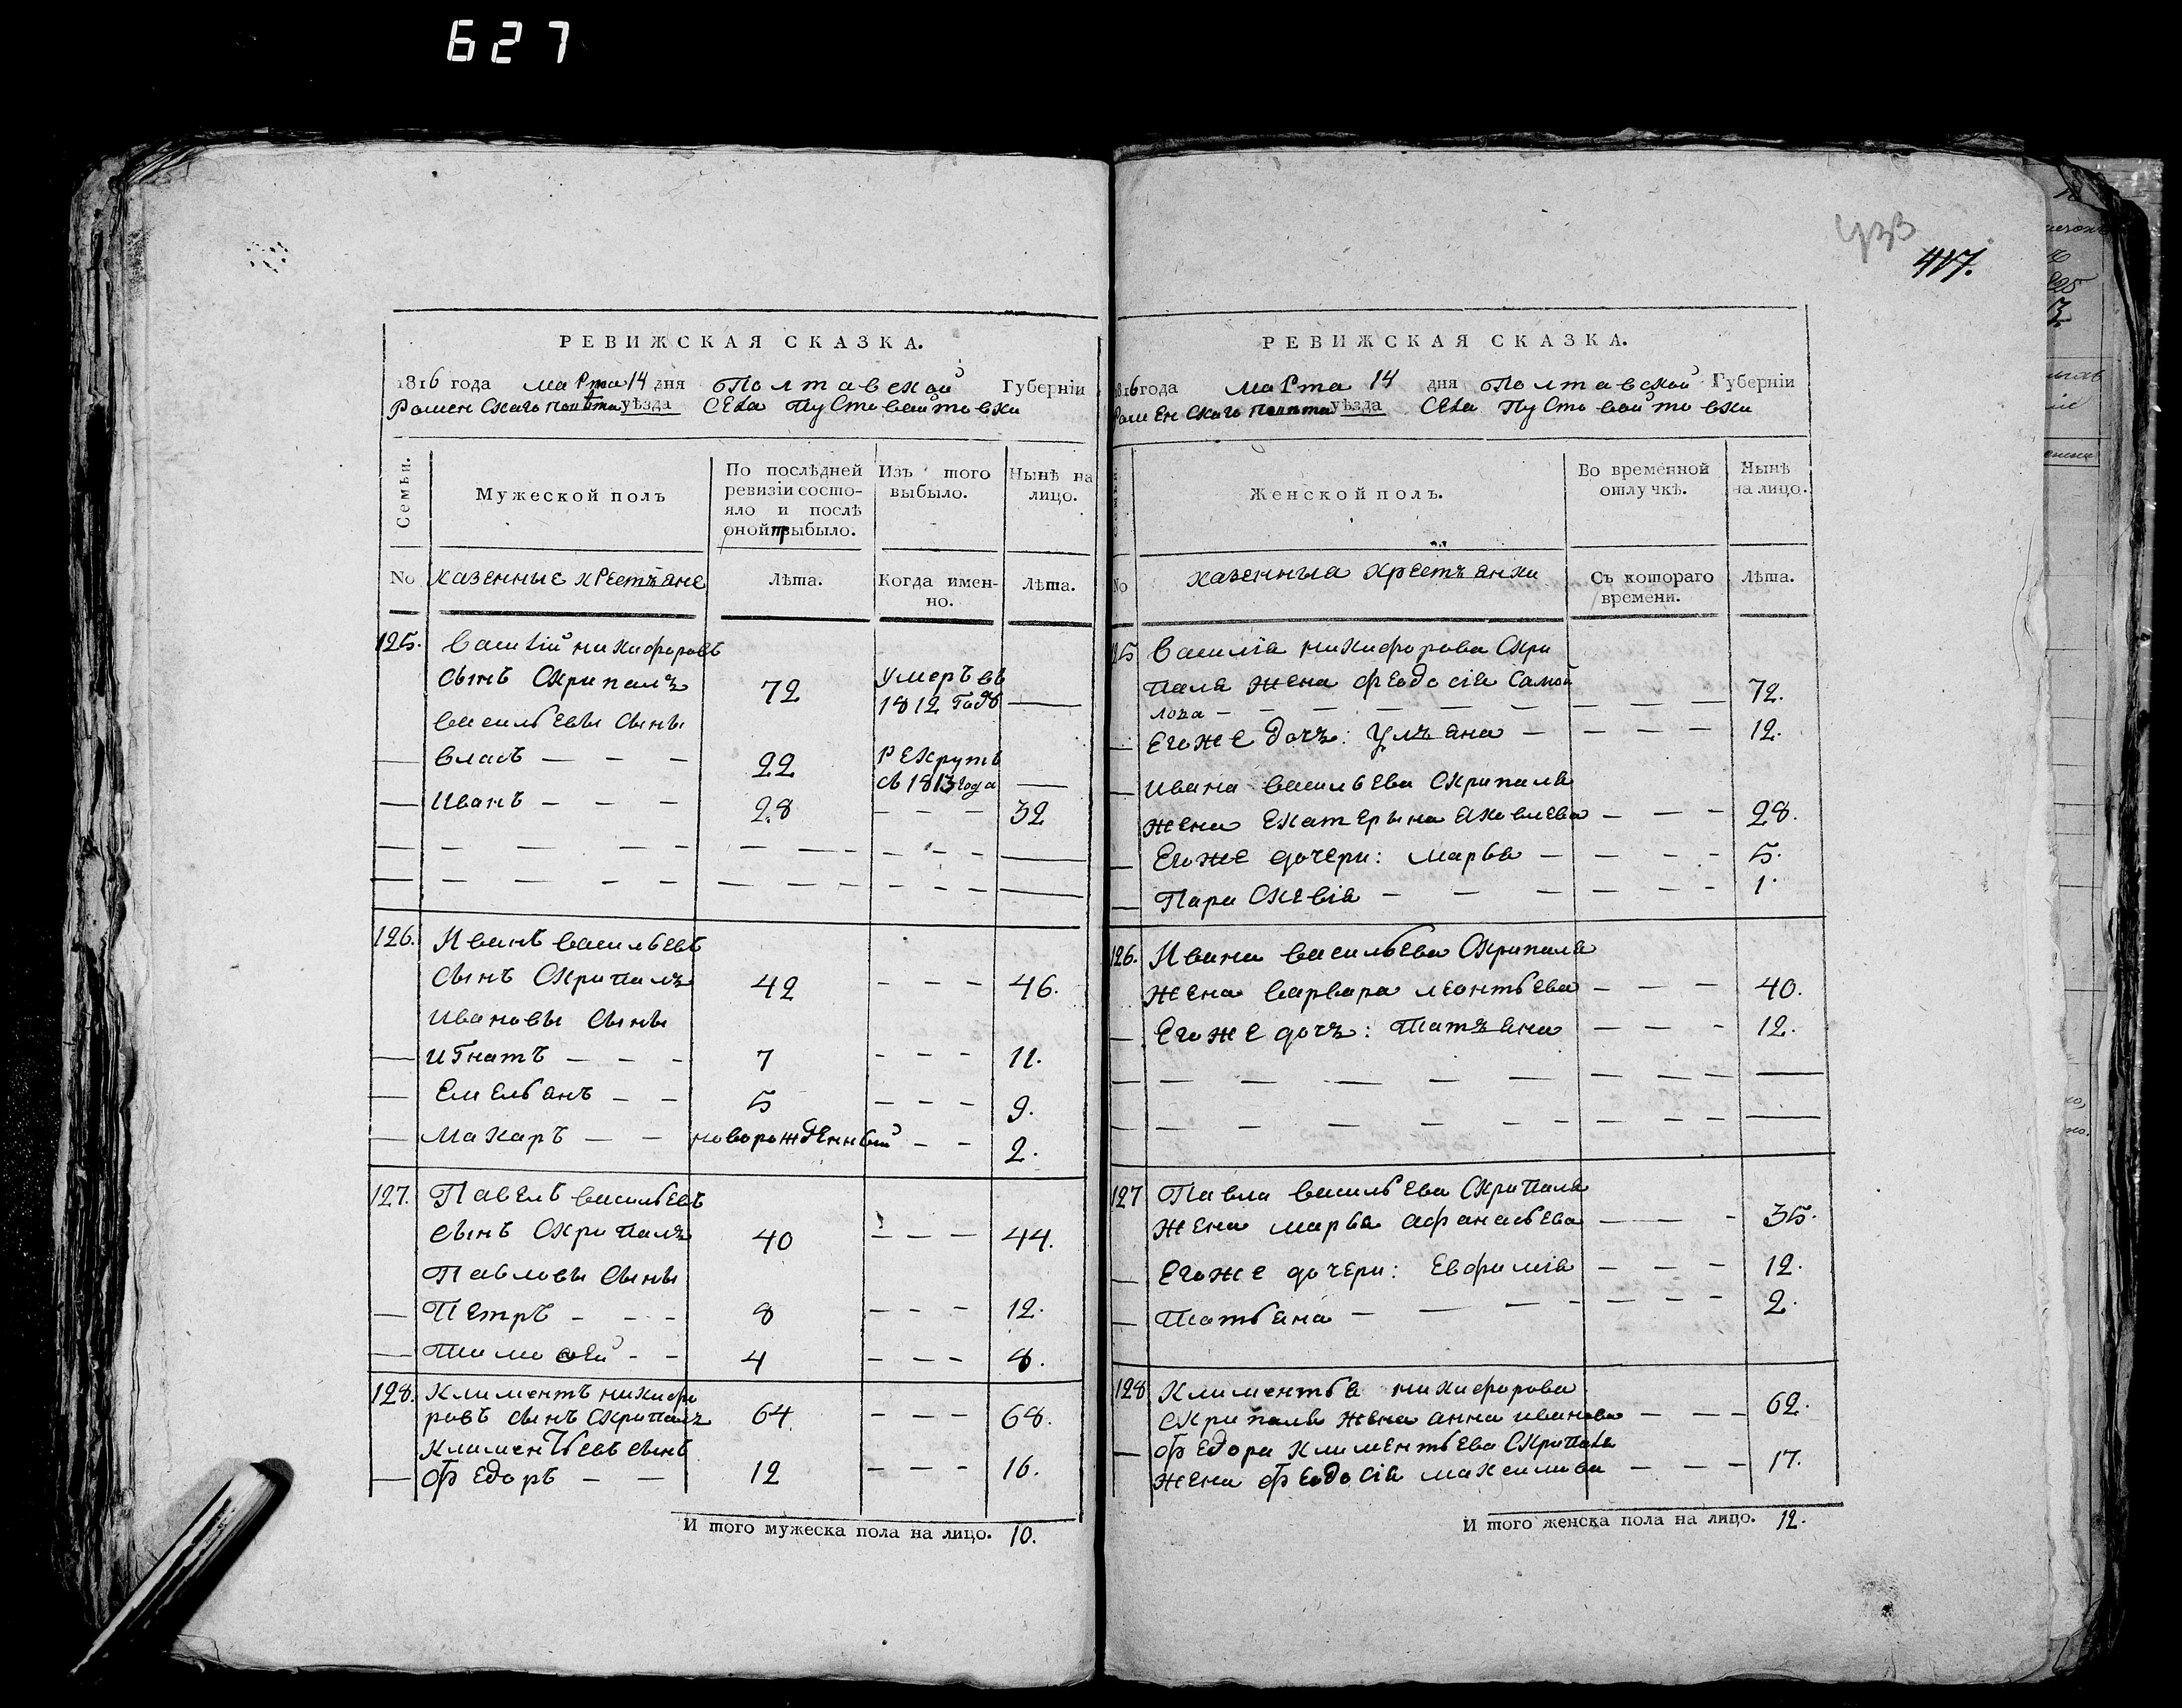 627
РЕВИЖСКАЯ СКАЗКА.
1816 года марта 14 дня Полтавской Губерніи
Роменскаго повѣта уѣзда села Пустовойтовки
Семьи.
Мужеской полъ
По послѣдней
ревизіи состо-
яло и послѣ
оной прибыло.
Изъ того
выбыло.
Нынѣ на
лицо.
No казенные крестъяне
Лѣта.
Когда имен-
но.
Лѣта.
125. василій никифоровъ
сынъ Скрипалъ 72 умеръ въ
1812 годѣ —
васильевы сыны
— власъ — — — 22 рекрутъ
съ 1813 года —
— иванъ — — — 28 — — — 32
126. Иванъ васильевъ
сынъ Скрипалъ 42 — — — 46.
ивановы сыны
— игнатъ — — — 7 — — — 11.
— Емельянъ — — 5 — — — 9.
— Макаръ — — новорожденный — — 2.
127. Павелъ васильевъ
сынъ Скрипалъ 40 — — — 44.
Павловы сыны
— Петръ — — — 8 — — — 12.
— Тимофей — — 4 — — — 8.
128. Климентъ никифо
ровъ сынъ Скрипалъ 64 — — — 68.
климентьевъ сынъ
— федоръ — — 12 — — — 16.
И того мужеска пола на лицо. 10.
417.
РЕВИЖСКАЯ СКАЗКА.
1816 года марта 14 дня Полтавской Губерніи
Роменскаго повѣта уѣзда села Пустовойтовки
Женской полъ.
Во временной
отлучкѣ.
Нынѣ
на лицо.
No казенныя крестъянки
Съ котораго
времени.
Лѣта.
125 василія никифорова Скри
паля жена феодосія самой
лова — — — — — — — — — 72.
— Егоже дочъ: Улъяна — — — — 12.
— ивана васильева Скрипаля
жена Екатерына яковлева — — — 28.
— Егоже дочери: марья — — — — 5.
— Параскевія — — — — — — 1.
126. Ивана васильева Скрипаля
жена варвара леонтьева — — — 40.
— Егоже дочъ: Татъяна — — — 12.
127 Павла васильева Скрипаля
жена марья афанасьева — — — 35.
— Егоже дочери: Евфимія — — — 12.
— Татьяна — — — — — — — 2.
128 Климентья никифорова
скрипаля жена анна иванова — — — 62.
— федора климентьева Скрипаля
жена феодосія максимова — — — 17.
И того женска пола на лицо. 12.